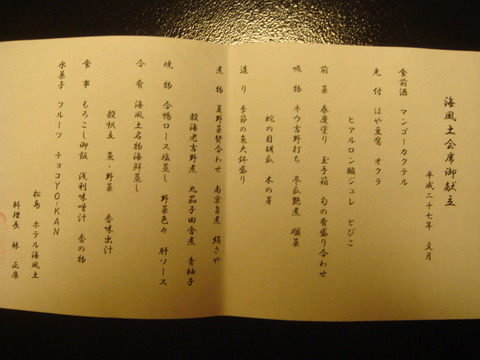 海風土会席御献立
平成二十七年 文月
食前酒 マンゴーカクテル
先付 ほや豆腐 オクラ
ヒアルロン酸ジュレ とびこ
前菜 春慶塗り 玉手箱 旬の肴盛り合わせ
吸物 キウ吉野打ち 冬瓜艶煮 順菜
蛇の目胡瓜 木の芽
造り 季節の魚大鉢盛り
煮物 夏野菜焚合わせ 南京旨煮 絹さや
穀海老吉野煮 丸茄子田舎煮 青柚子
焼物 合鴨ロース塩蒸し 野菜色々 肝ソース
合肴 海風土名物海鮮蒸し
殻帆立 魚・野菜 香味出汁
食事 もろこし御飯 浅利味噌汁 香の物
水菓子 フルーツ チョコYO-KAN
松島 ホテル海風土
料理長 林 正